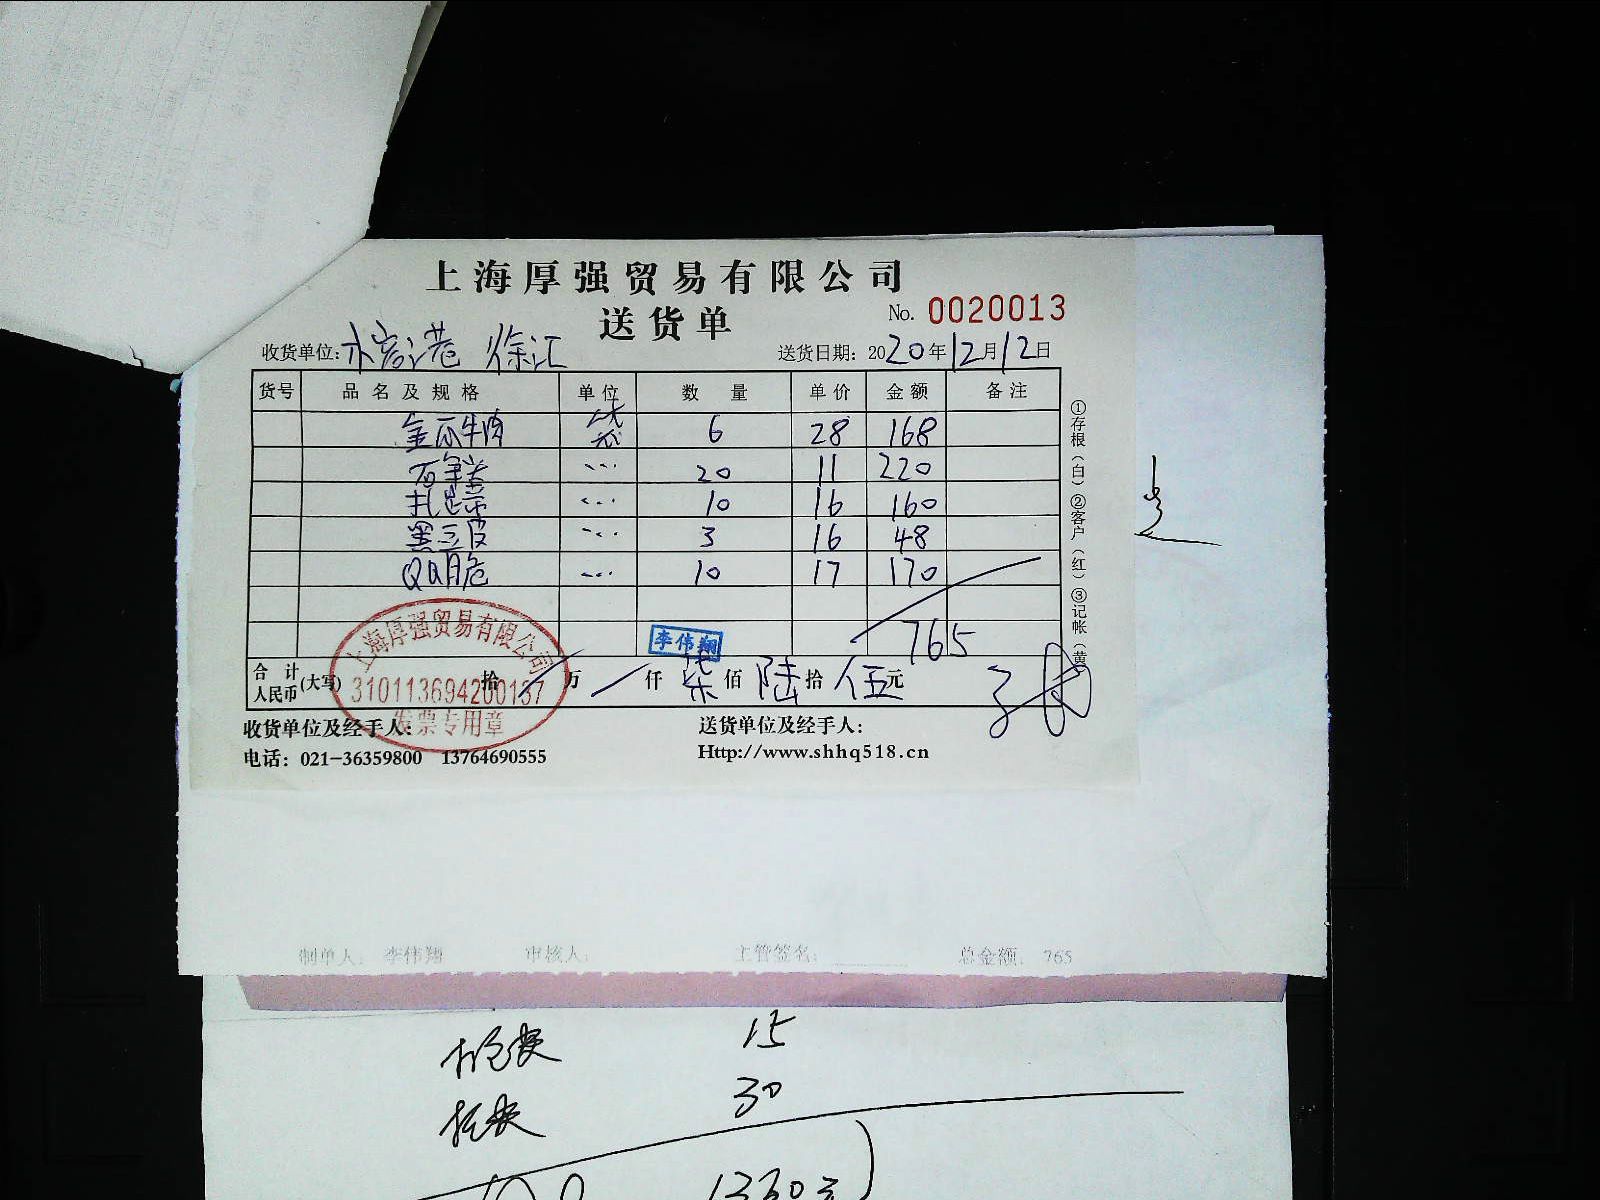 上海厚强贸易有限公司
送货单
No. 0020013
收货单位: 徐汇
送货日期: 2020年12月12日
货号 品名及规格 单位 数量 单价 金额 备注
牛肉 袋 6 28 168
〃 20 11 220
扎 〃 10 16 160
黑豆皮 〃 3 16 48
〃 10 17 170
李伟翔
765
合计人民币(大写) 拾 万 仟 柒 佰 陆 拾 伍 元
上海厚强贸易有限公司
310113694200137
发票专用章
收货单位及经手人: 送货单位及经手人:
电话: 021-36359800 13764690555 Http://www.shhq518.cn
①存根(白)②客户(红)③记帐(黄
制单人: 李伟翔 审核人: 主管签名: 总金额: 765
15
30
1330元